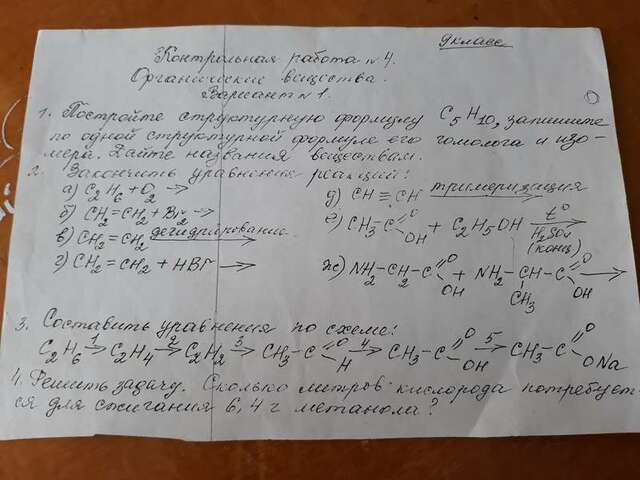 9 класс
Контрольная работа №4.
Органические вещества.
Вариант №1.
1. Постройте структурную формулу C5H10, запишите
по одной структурной формуле его гомолога и изо-
мера. Дайте названия веществам.
2. Закончить уравнения реакций:
а) C2H6 + O2 →
б) CH2=CH2 + Br2 →
в) CH2=CH2 дегидрирование→
г) CH2=CH2 + HBr →
д) CH≡CH тримеризация→
е) CH3-C(=O)OH + C2H5OH t°, H2SO4 (конц)→
ж) NH2-CH2-C(=O)OH + NH2-CH(CH3)-C(=O)OH →
3. Составить уравнения по схеме:
C2H6 1→ C2H4 2→ C2H2 3→ CH3-C(=O)H 4→ CH3-C(=O)OH 5→ CH3-C(=O)ONa
4. Решить задачу. Сколько литров кислорода потребует-
ся для сжигания 6,4 г метанола?